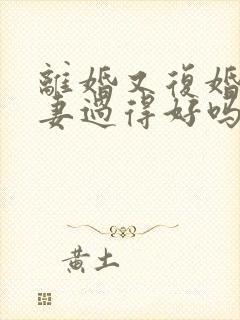 離婚又復婚
妻過得好嗎
黃土